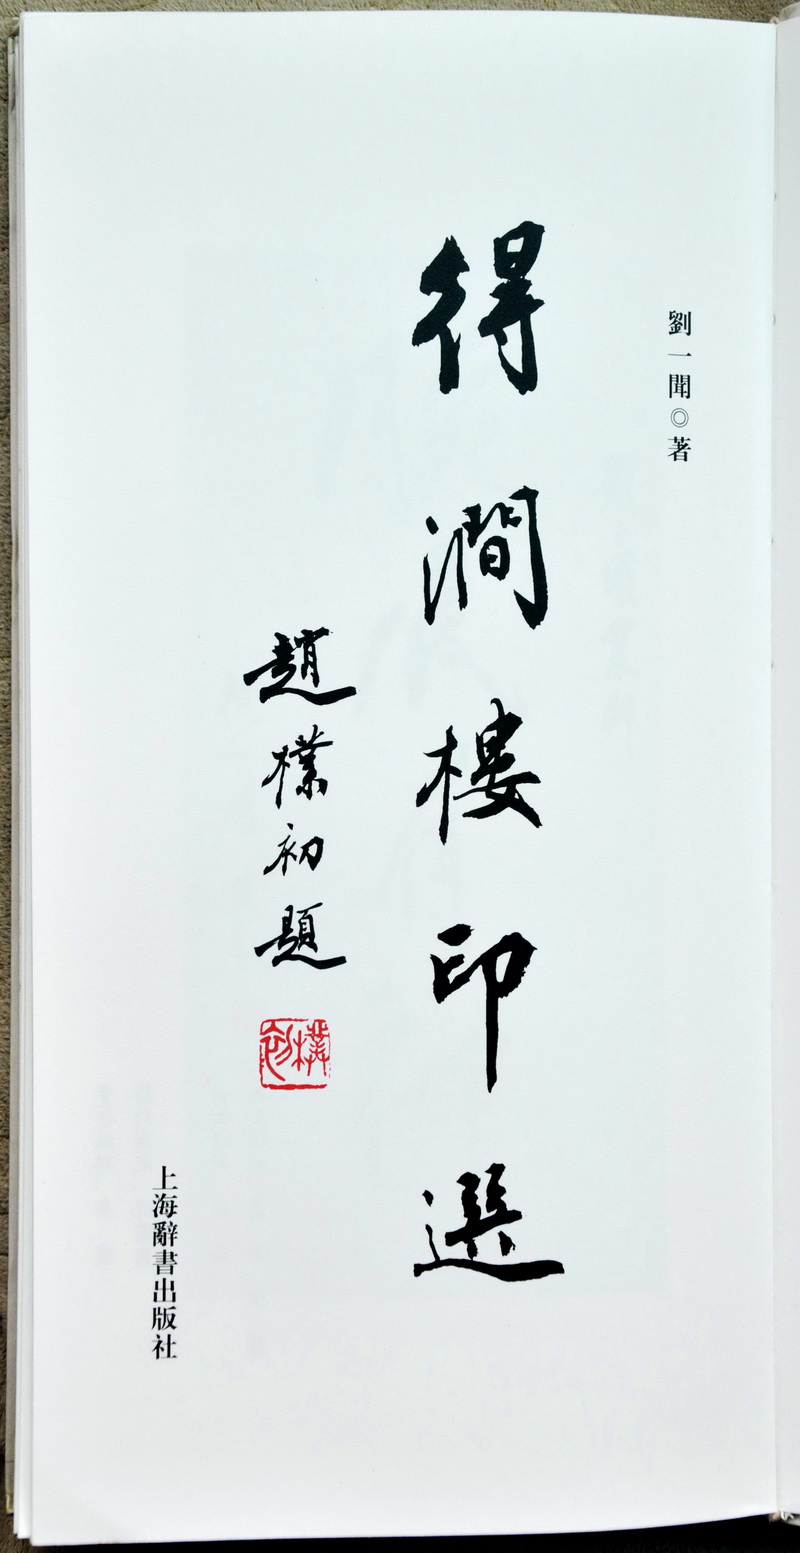 劉一聞◎著
得澗樓印選
趙樸初題
樸初
上海辭書出版社